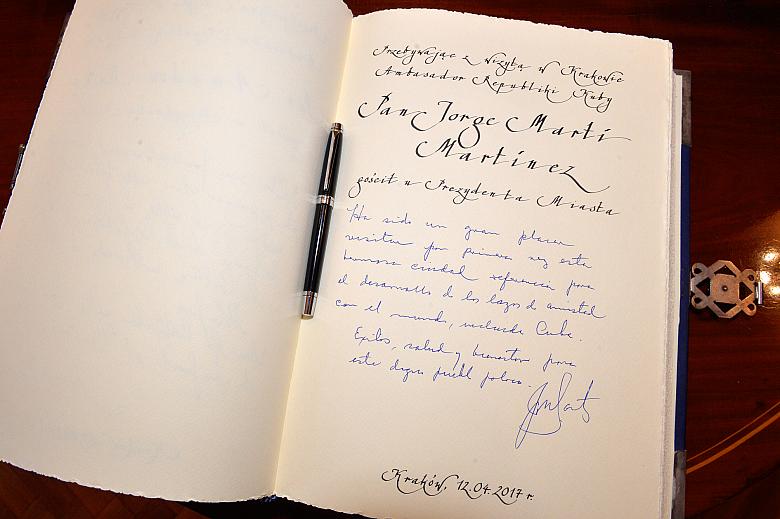 Przebywając z wizytą w Krakowie
Ambasador Republiki Kuby
Pan Jorge Martí
Martínez
gościł u Prezydenta Miasta
Ha sido un gran placer
visitar por primera vez esta
hermosa ciudad referencia para
el desarrollo de los lazos de amistad
con el mundo, incluida Cuba.
Exitos, salud y bienestar para
este digno pueblo polaco.
Kraków, 12.04.2017 r.